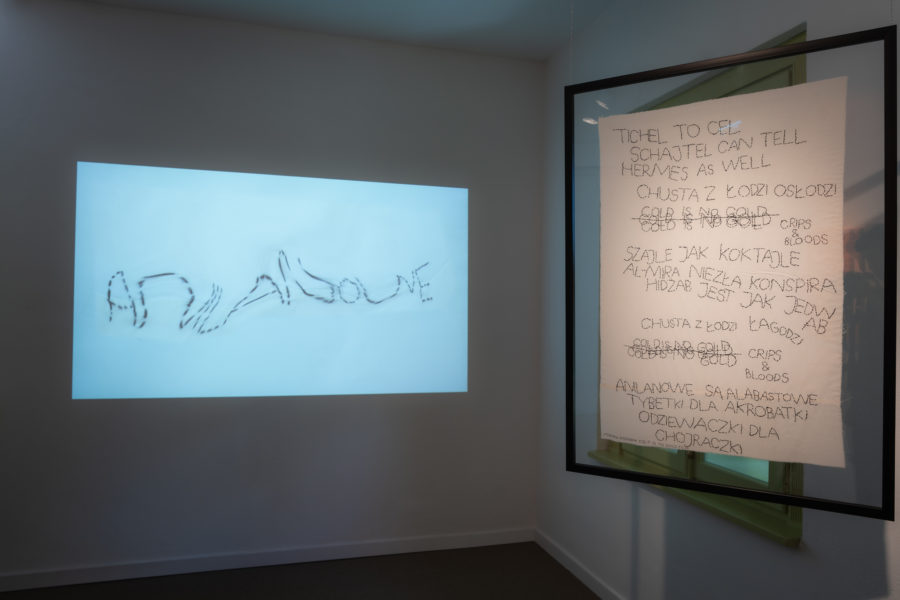 TICHEL TO CEL
SCHAJTEL CAN TELL
HERMES AS WELL
CHUSTA Z ŁODZI OSŁODZI
GOLD IS NO GOLD
COLD IS NO GOLD
CRIPS
&
BLOODS
SZAJLE JAK KOKTAJLE
ALMIRA NIEZŁA KONSPIRA
HIDŻAB JEST JAK JEDW
AB
CHUSTA Z ŁODZI ŁAGODZI
COLD IS NO GOLD
COLD IS NO GOLD
CRIPS
&
BLOODS
ANILANOWE SĄ ALABASTOWE
TYBETKI DLA AKROBATKI
ODZIEWACZKI DLA
CHOJRACZKI